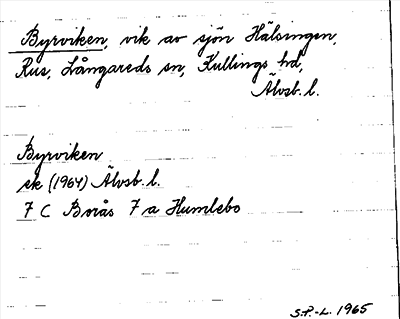 Byrviken, vik av sjön Hälsingen,
Rus, Långareds sn, Kullings hd,
Älvsb. l.
Byrviken
ek (1964) Älvsb. l.
7 C Borås 7 a Humlebo
S.P.-L. 1965